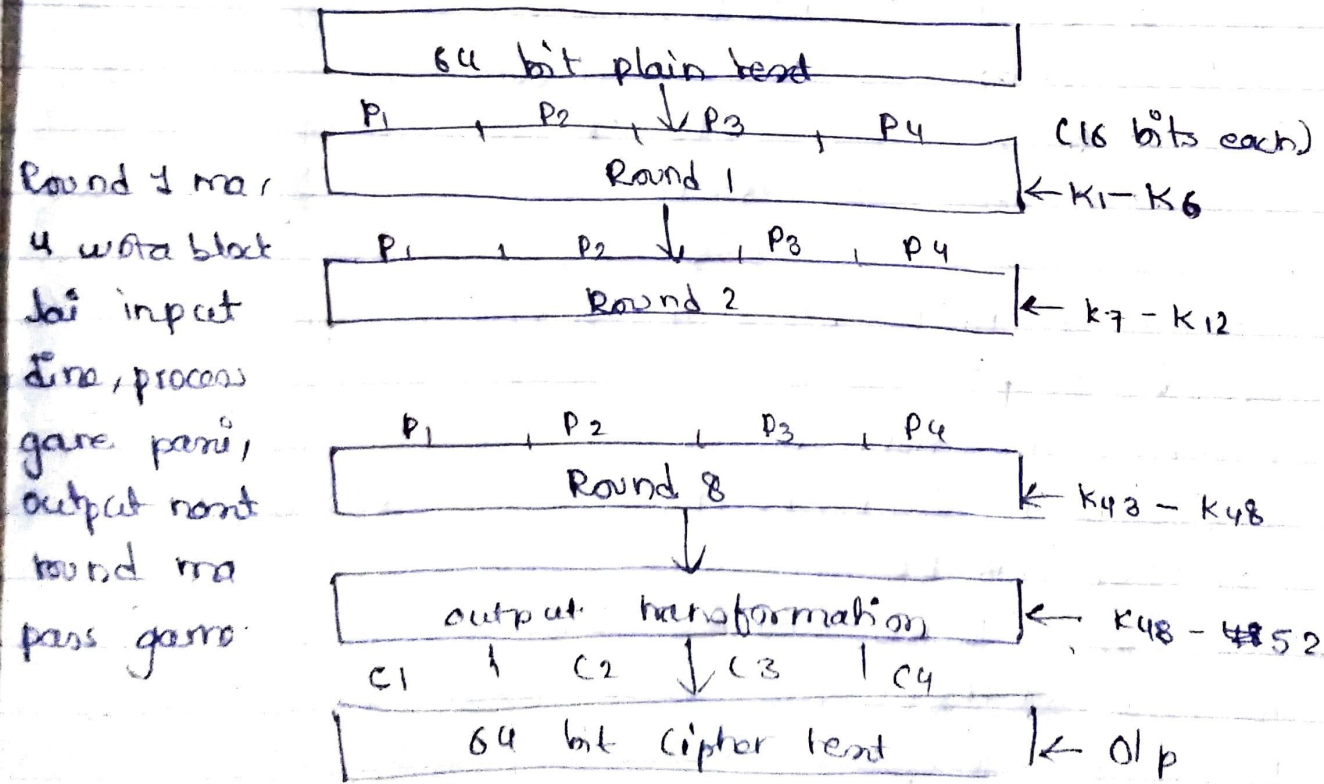 64 bit plain text
P1 P2 P3 P4 (16 bits each)
Round 1
← K1 - K6
P1 P2 P3 P4
Round 2
← K7 - K12
P1 P2 P3 P4
Round 8
← K43 - K48
output transformation
← K48 - 52
C1 C2 C3 C4
64 bit Cipher text
← O/p
Round 1 ma,
4 wota block
lai input
dine, process
gare pani,
output next
round ma
pass garne.